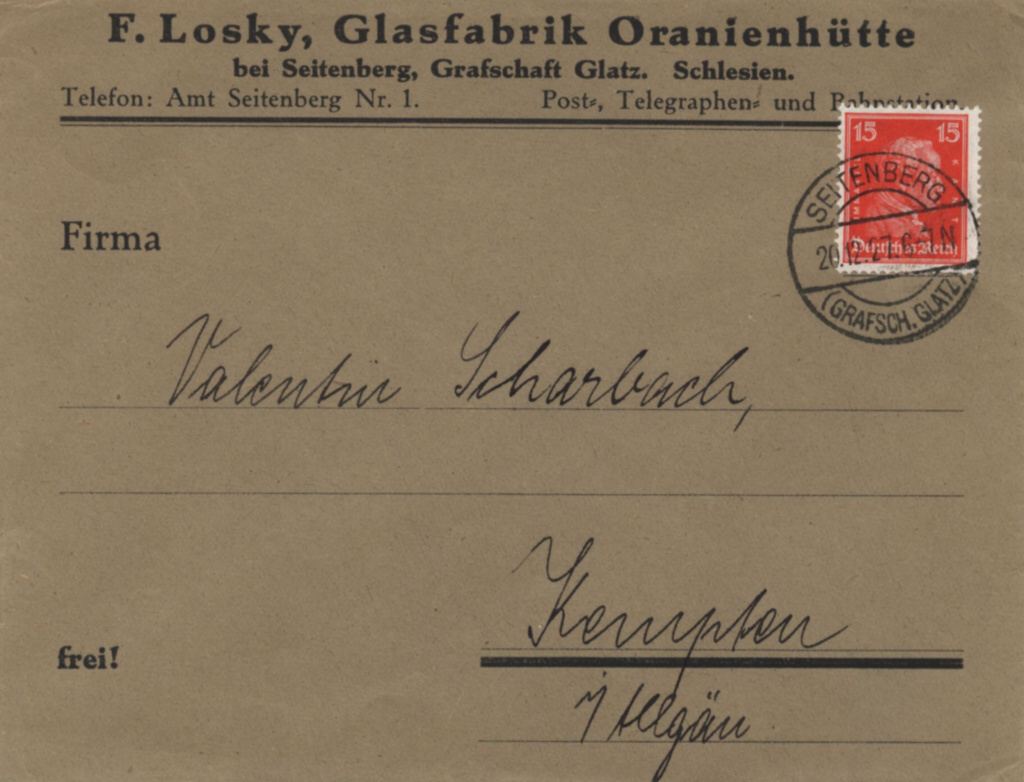 F. Losky, Glasfabrik Oranienhütte
bei Seitenberg, Grafschaft Glatz. Schlesien.
Telefon: Amt Seitenberg Nr. 1. Post-, Telegraphen- und Bahnstation.
15 15
SEITENBERG
20.12.27. 6-7 N
Deutsches Reich
(GRAFSCH. GLATZ)
Firma
Valentin Scharbach,
Kempten
frei!
i/Allgäu